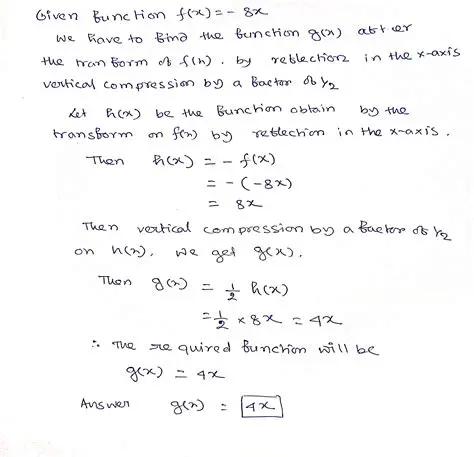 Given Function f(x) = - 8x
We have to find the function g(x) after
the transform of f(x). by reflection in the x-axis
vertical compression by a factor of 1/2
Let h(x) be the function obtain by the
transform on f(x) by reflection in the x-axis.
Then h(x) = - f(x)
= - (-8x)
= 8x
Then vertical compression by a factor of 1/2
on h(x), we get g(x).
Then g(x) = 1/2 h(x)
= 1/2 × 8x = 4x
∴ The required function will be
g(x) = 4x
Answer g(x) = 4x